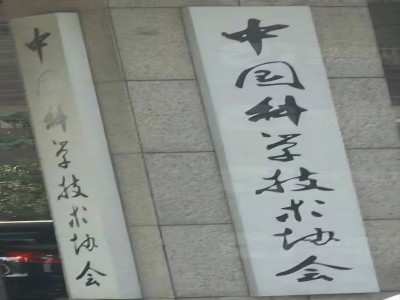 中国科学技术协会
中国科学技术协会